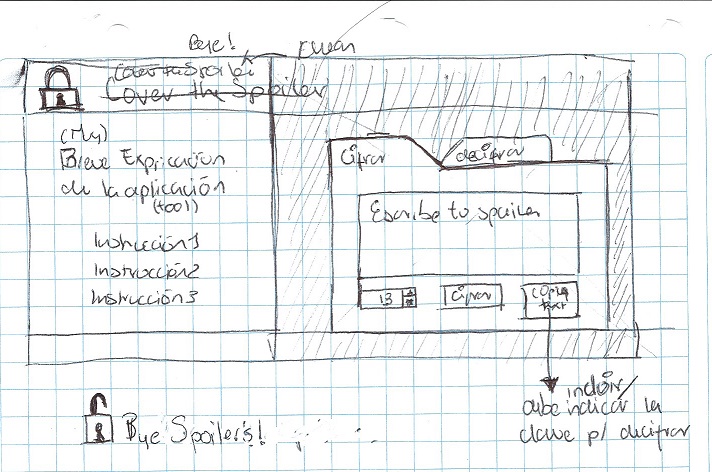 Bye!
Cover the Spoiler
(My)
Breve Explicación
de la aplicación
(tool)
Instrucción 1
Instrucción 2
Instrucción 3
Cifrar
decifrar
Escribe tu spoiler
13
Cifrar
copiar
text
incluir/
debe indicar la
clave p/ decifrar
Bye Spoilers!